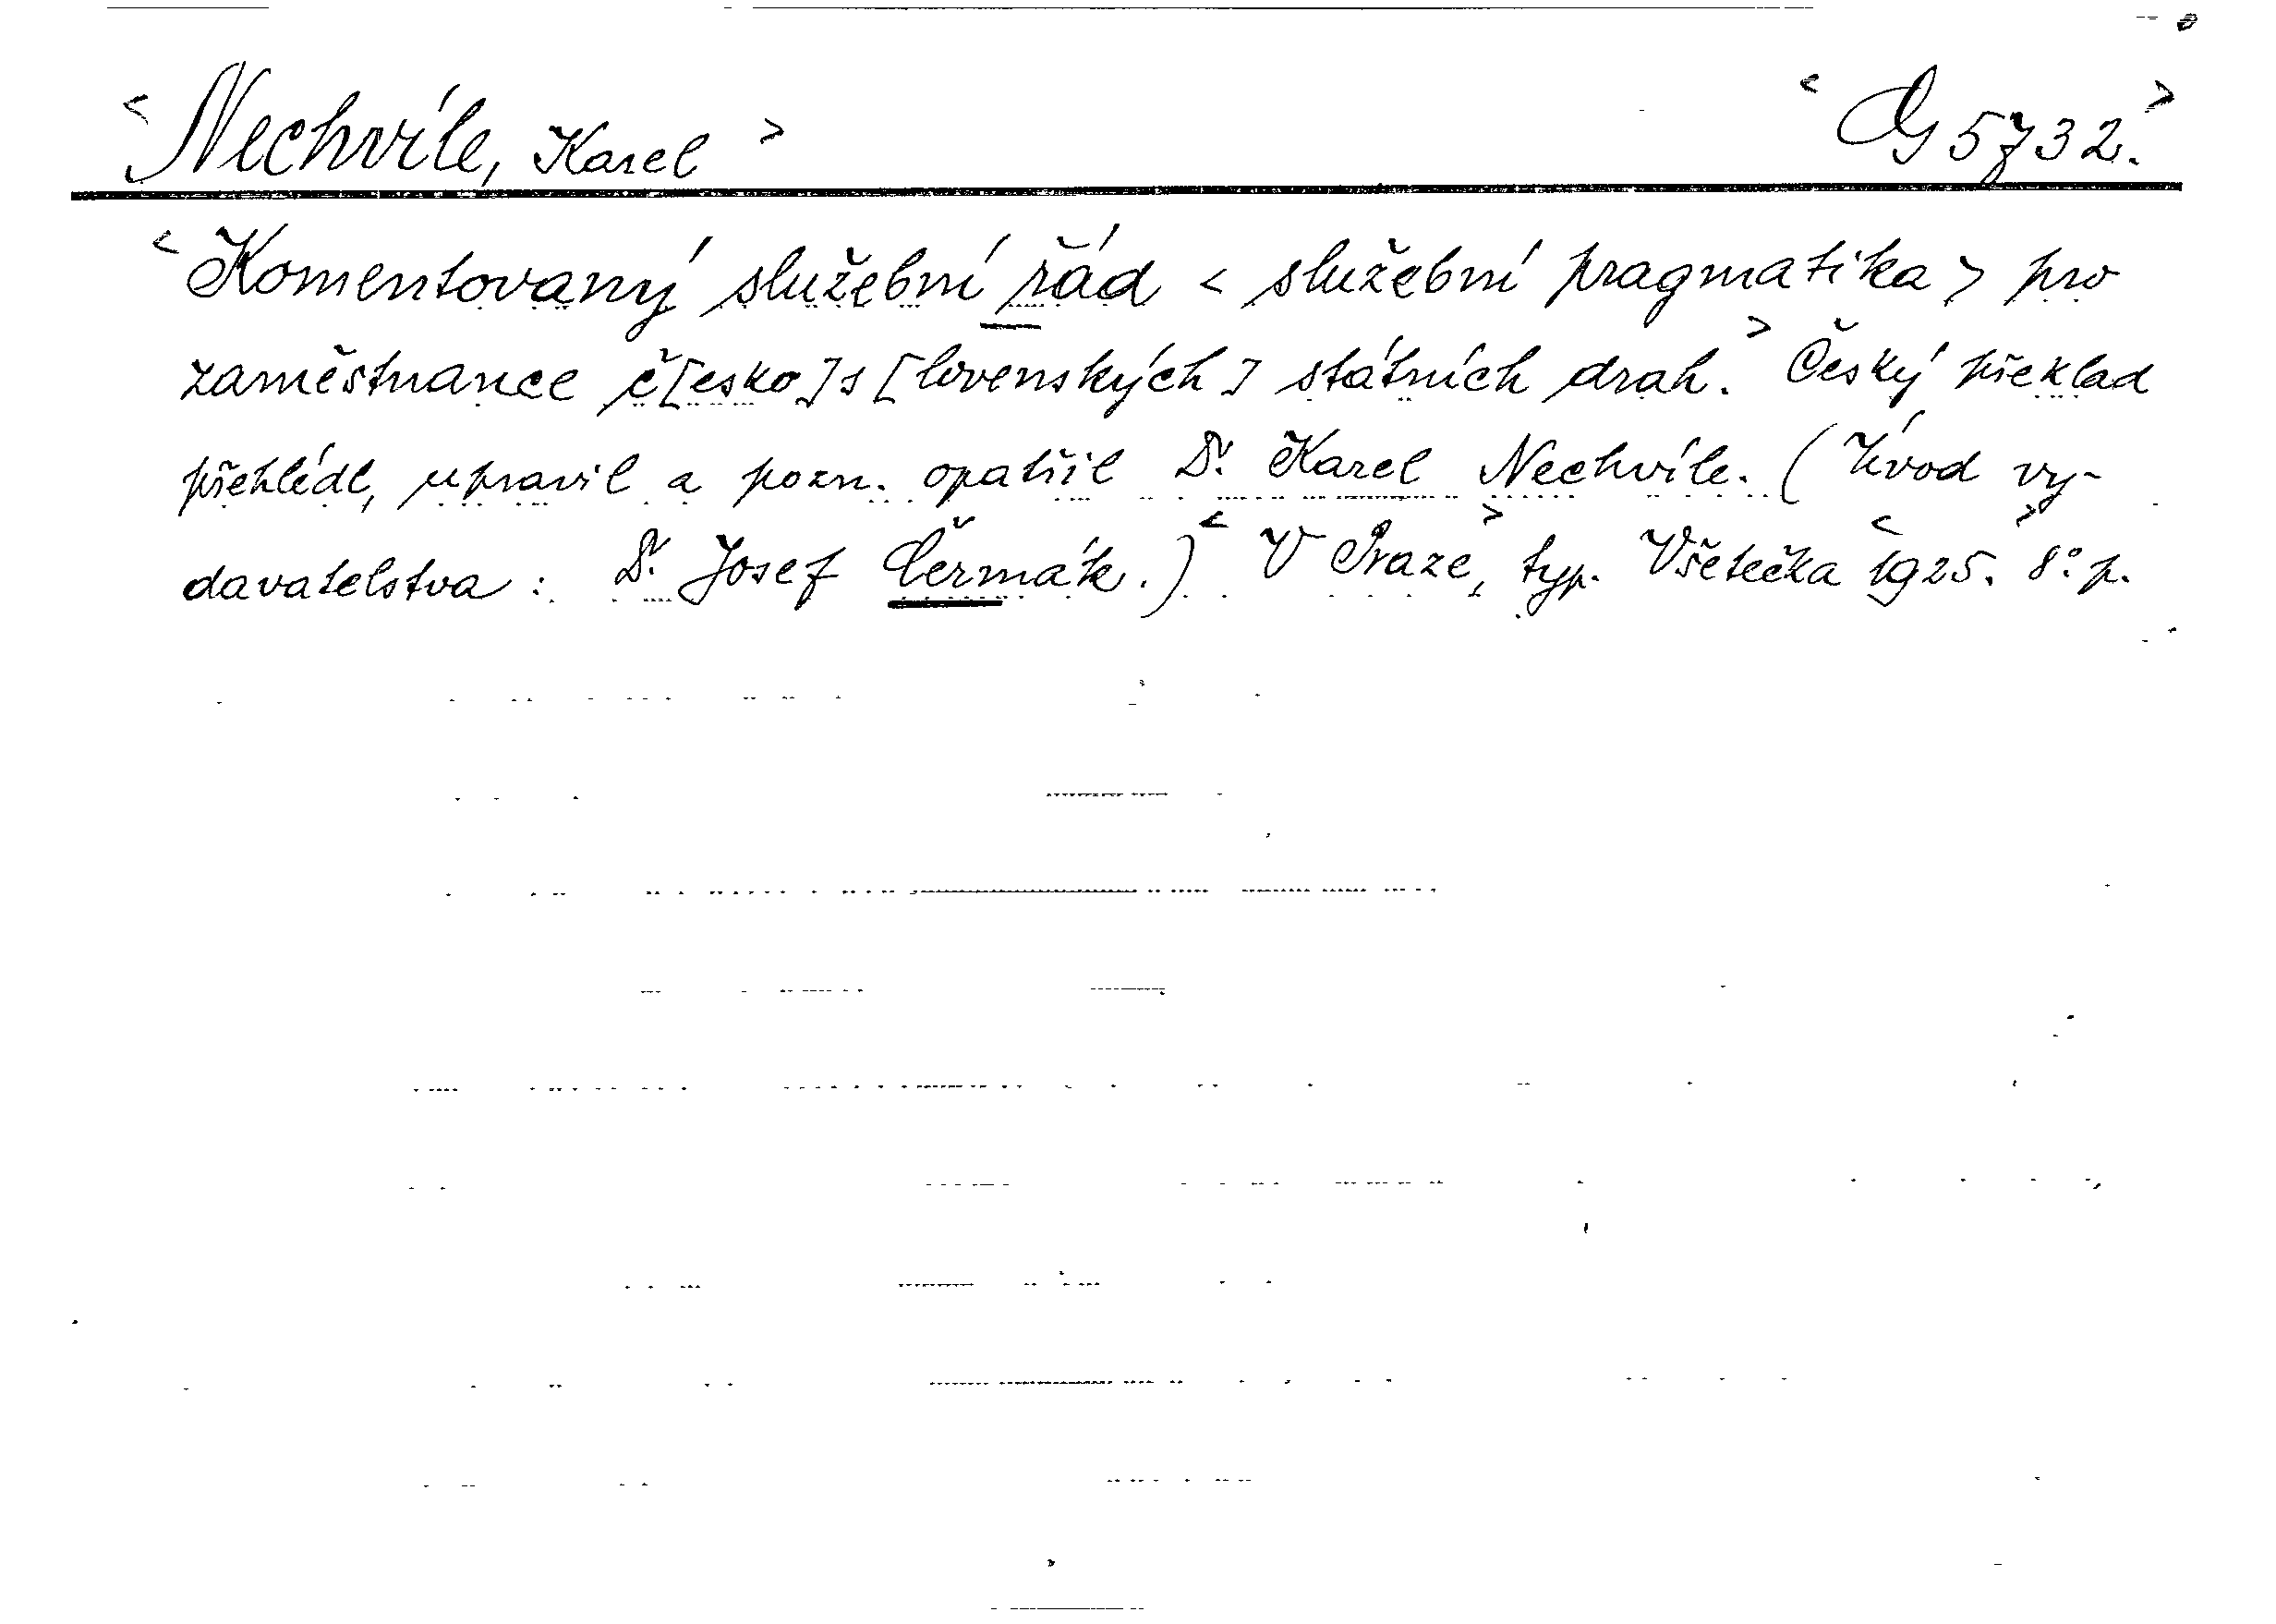 < Nechvíle, Karel > < G 5732. >
< Komentovaný služební řád < služební pragmatika > pro
zaměstnance č[esko]s[lovenských] státních drah. > Český překlad
přehlédl, upravil a pozn. opatřil Dr. Karel Nechvíle. (Úvod vy-
davatelstva: Dr. Josef Čermák.) < V Praze, > typ. Všetečka < 1925. > 8° p.